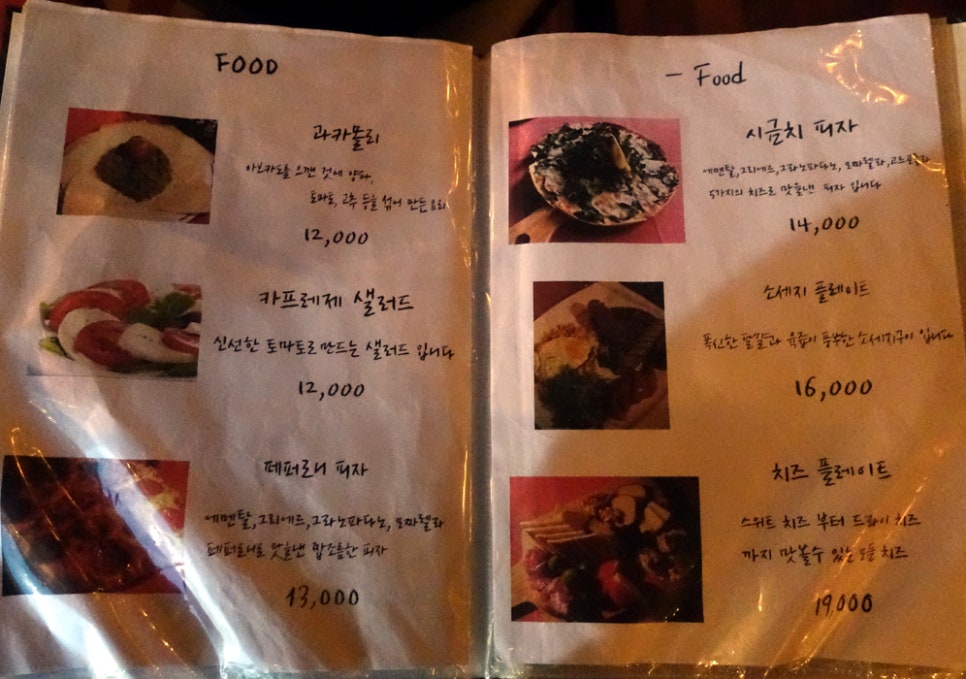 FOOD
과카몰리
아보카도를 으깬 것에 양파,
토마토, 고추 등을 섞어 만든 요리
12,000
카프레제 샐러드
신선한 토마토로 만드는 샐러드 입니다
12,000
페퍼로니 피자
에멘탈, 그리에르, 그라노파다노, 모짜렐라
페퍼로니로 맛을낸 짭쪼름한 피자
13,000
- Food
시금치 피자
에멘탈, 그리에르, 그라노파다노, 모짜렐라, 고르곤졸라
5가지의 치즈로 맛을낸 피자 입니다
14,000
소세지 플레이트
폭신한 달걀과 육즙이 풍부한 소세지구이 입니다
16,000
치즈 플레이트
스위트 치즈 부터 드라이 치즈
까지 맛볼수 있는 모듬 치즈
19,000